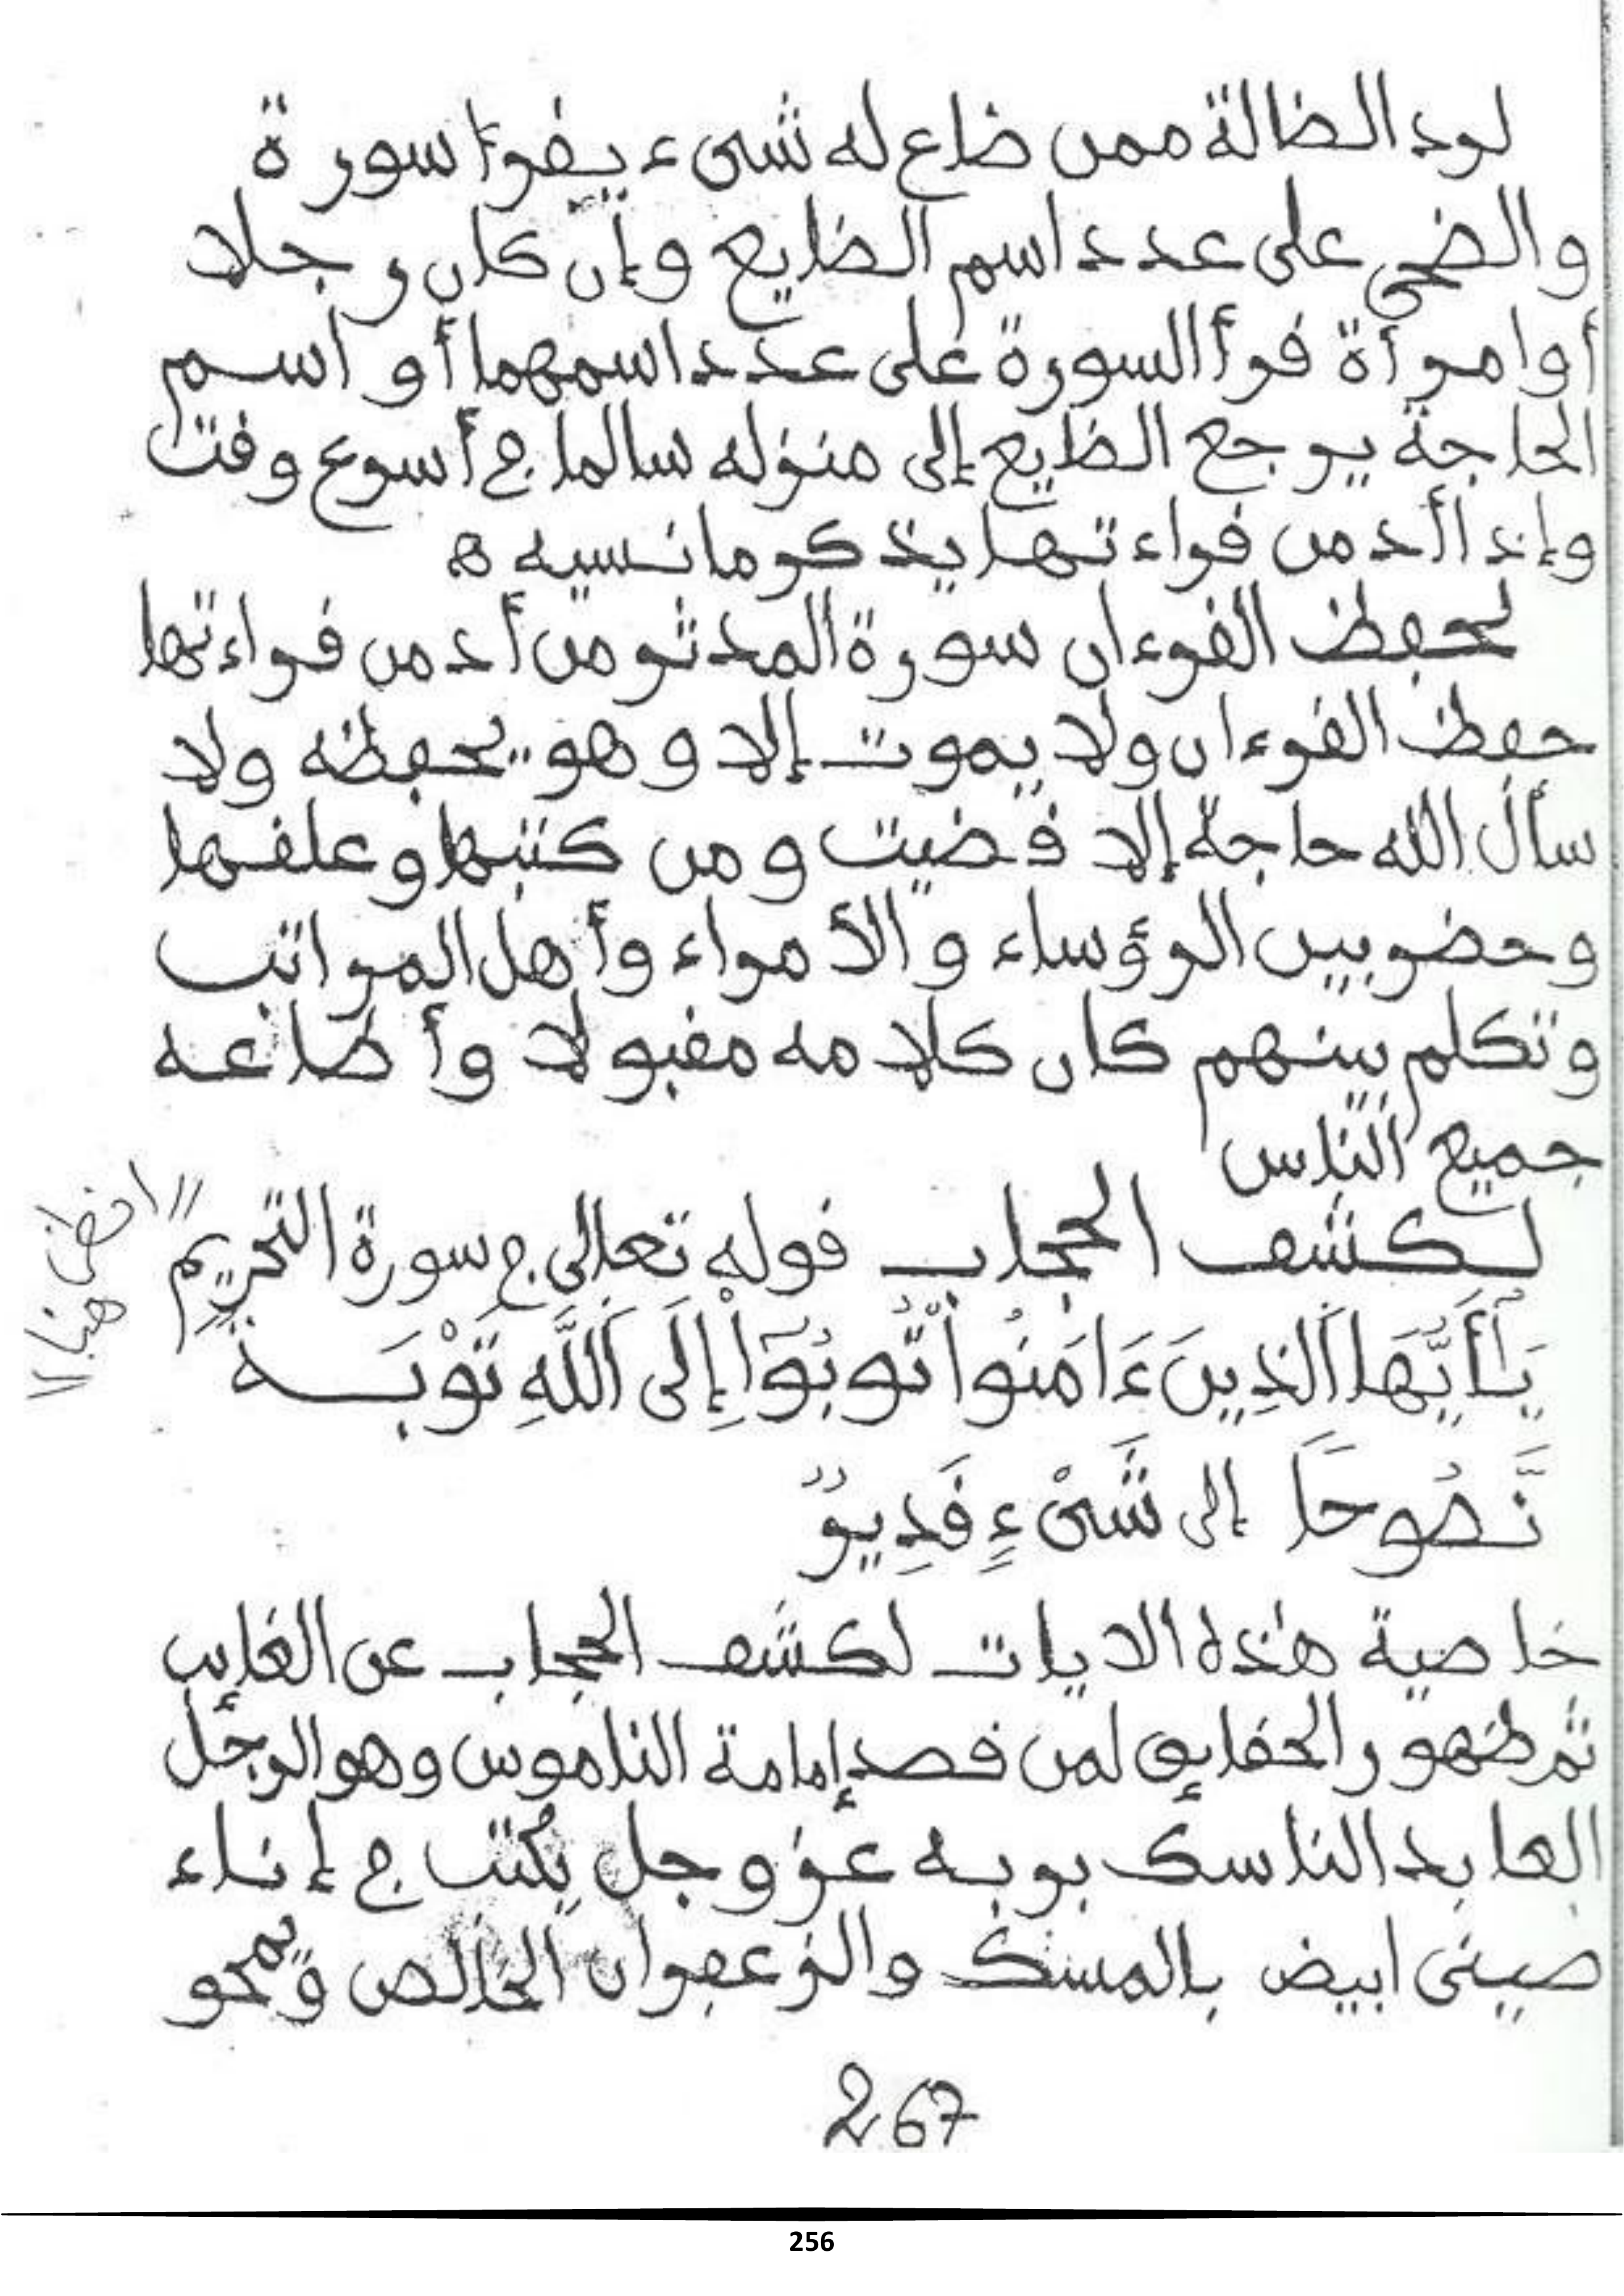 لرد الضالة ممن ضاع له شيء يقرأ سورة
والضحى على عدد اسم الضايع وإن كان رجلا
أو امرأة قرأ السورة على عدد اسمهما أو اسم
الحاجة يرجع الضايع إلى منزله سالما في أسرع وقت
وإذا أدمن قراءتها يذكر ما نسيه ه
لحفظ القرءان سورة المدثر من أدمن قراءتها
حفظ القرءان ولا يموت إلا وهو يحفظه ولا
سأل الله حاجة إلا قضيت ومن كتبها وعلقها
وحضر بين الرؤساء والأمراء وأهل المراتب
وتكلم بينهم كان كلامه مقبولا وأطاعه
جميع الناس
لكشف الحجاب قوله تعالى في سورة التحريم
"انظر هنا"
يَـٰٓأَيُّهَا اَ۬لذِينَ ءَامَنُواْ تُوبُوٓاْ إِلَى اَ۬للَّهِ تَوْبَةً
نَّصُوحًا إلى شَىْءٍ قَدِيرٌ
خاصية هذه الايات لكشف الحجاب عن الغايب
ثم ظهور الحقايق لمن قصد إمامة الناموس وهو الرجل
العابد الناسك بربه عز وجل يكتب في إناء
صينى ابيض بالمسك والزعفران الخالص ويمحو
267
256